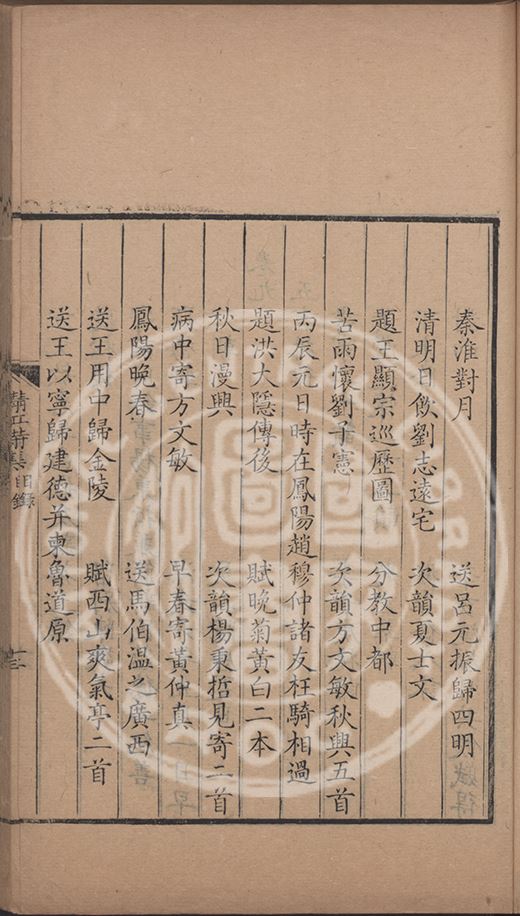 秦淮對月　送呂元振歸四明
清明日飲劉志遠宅　次韻夏士文
題王顯宗巡歷圖　分教中都
苦雨懷劉子憲　次韻方文敏秋興五首
丙辰元日時在鳳陽趙穆仲諸友枉騎相過
題洪大隱傳後　賦晚菊黃白二本
秋日漫興　次韻楊秉哲見寄二首
病中寄方文敏　早春寄黃仲真
鳳陽晚春　送馬伯溫之廣西
送王用中歸金陵　賦西山爽氣亭二首
送王以寧歸建德并柬魯道原
目錄
十三